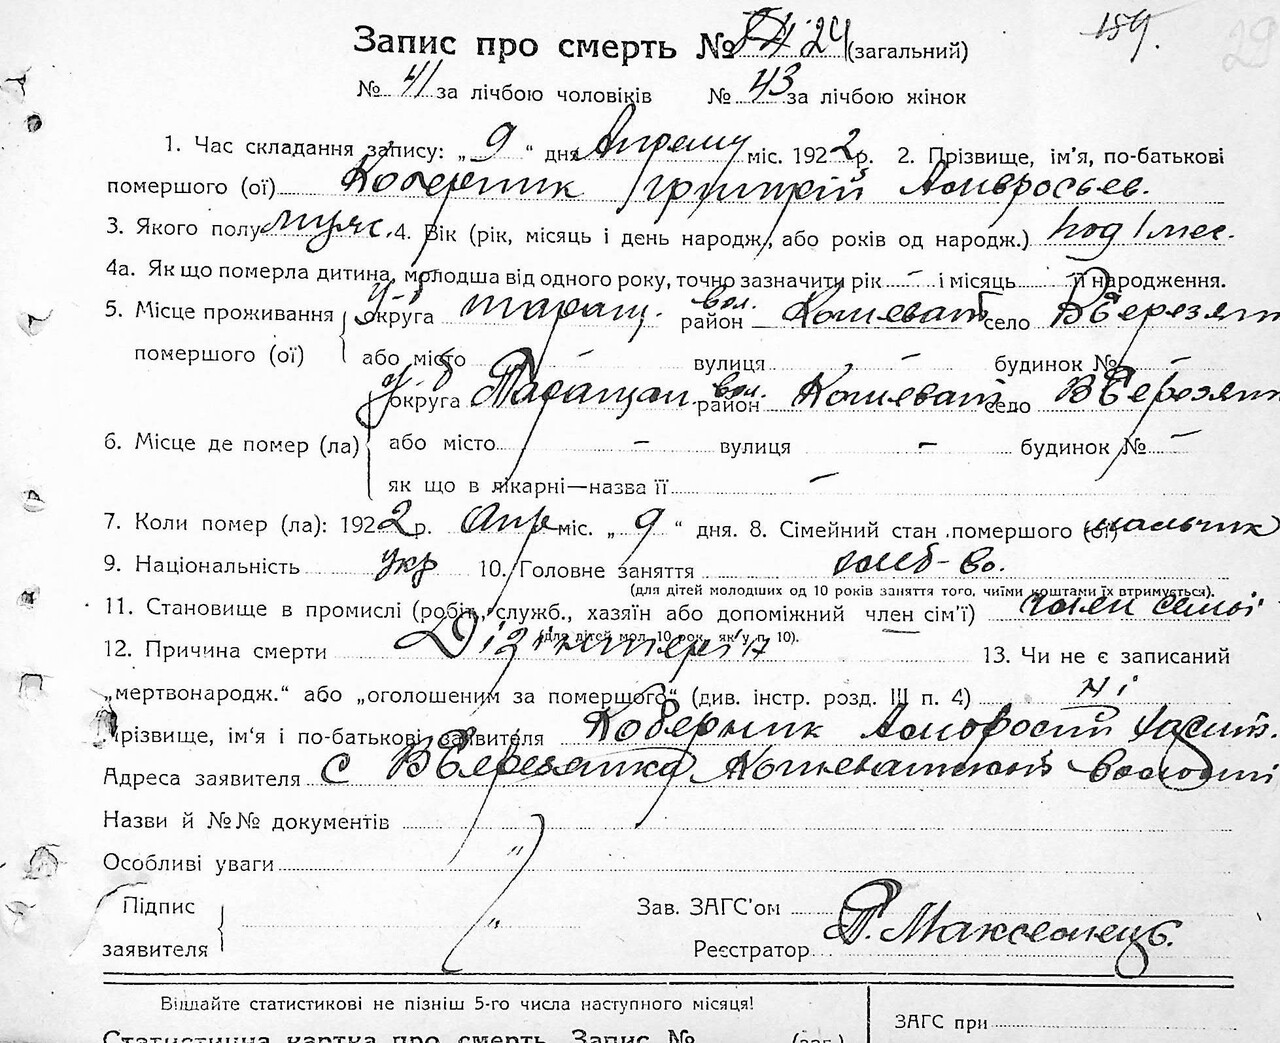 Запис про смерть № 24 (загальний)
189.
29
№ 41 за лічбою чоловіків № 43 за лічбою жінок
1. Час складання запису: „ 9 “ дня Апрелу міс. 1922 р. 2. Прізвище, ім’я, по-батькові
помершого (ої) Коберник Григорій Амвросьев.
3. Якого полу муж. 4. Вік (рік, місяць і день народж., або років од народж.) год 1 мес.
4а. Як що померла дитина, молодша від одного року, точно зазначити рік – і місяць – її народження.
5. Місце проживання у-д вол.
округа Таращ. район Кошеват село В Березян
помершого (ої) або місто – вулиця – будинок № –
у-д вол.
округа Таращан. район Кошеват село В Березян
6. Місце де помер (ла) або місто – вулиця – будинок № –
як що в лікарні—назва її –
7. Коли помер (ла): 1922 р. Апр міс. „ 9 “ дня. 8. Сімейний стан помершого (ої) мальчик
9. Національність укр 10. Головне заняття хлеб-во.
(для дітей молодших од 10 років заняття того, чиїми коштами їх втримується).
11. Становище в промислі (робіт., служб., хазяїн або допоміжний член сім’ї) член семьі
(для дітей мол. 10 рок. як у п. 10).
12. Причина смерти Дізінтерія 13. Чи не є записаний
„мертвонародж.“ або „оголошеним за помершого“ (див. інстр. розд. III п. 4) ні
Прізвище, ім‘я і по-батькові заявителя Коберник Амвросій
Адреса заявителя с В Березянка Кошеватской волости
Назви й №№ документів
Особливі уваги "
Підпис
заявителя "
Зав. ЗАГС’ом
Реєстратор Т. Максемець.
Віддайте статистикові не пізніш 5-го числа наступного місяця!
ЗАГС при
Статистична картка про смерть. Запис № (заг.)